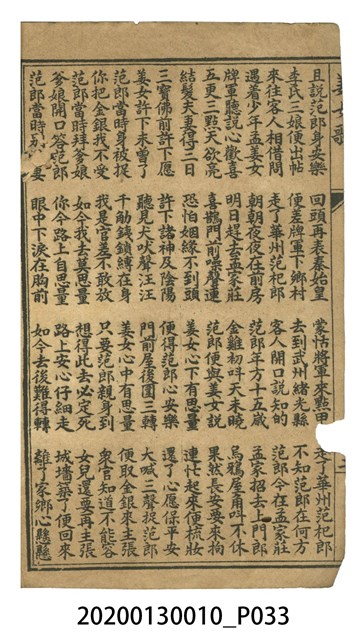 姜女歌
且說范郎身安樂 回頭再表秦始皇 蒙恬將軍來點甲 走了華州范杞郎
李氏三娘便出帖 便差牌軍下鄉村 去到武州緒光縣 不知范郎在何方
來往客人相借問 走了華州范杞郎 客人開口說知的 范郎今在孟家庄
遇着少年孟姜女 朝朝夜夜在前房 范郎年方十五歲 孟家招去上門郎
牌軍聽說心歡喜 明日趕去孟家莊 金雞初叫天未曉 烏鴉屋角叫不休
五更三點天欲亮 喜鵲門前噪聲連 范郎便與姜女說 果然長安要來拘
結髮夫妻得三日 恐怕姻緣不到頭 姜女心下有思量 連忙起來便梳妝
三寶佛前許下愿 許下諸神及陰陽 便得范郎心安樂 還了心愿保平安
姜女許下未曾了 聽見犬吠聲汪汪 門前屋後圍三轉 大喊三聲捉范郎
范郎當時身被捉 千觔鉄鎖縛在身 姜女心中有思量 便取金銀來主張
你把金銀我不受 我是官差不敢放 只要范郎親身到 衆官知道不能容
范郎當時拜爹娘 如今我去莫思量 想得此去必定死 女兒還要再主張
爹娘開口答范郎 你今路上自思量 路上安心仔細走 城墻築了便回來
范郎當時別妻 眼中下淚在胸前 如今去後難得轉 離了家鄉心懸懸
20200130010_P033